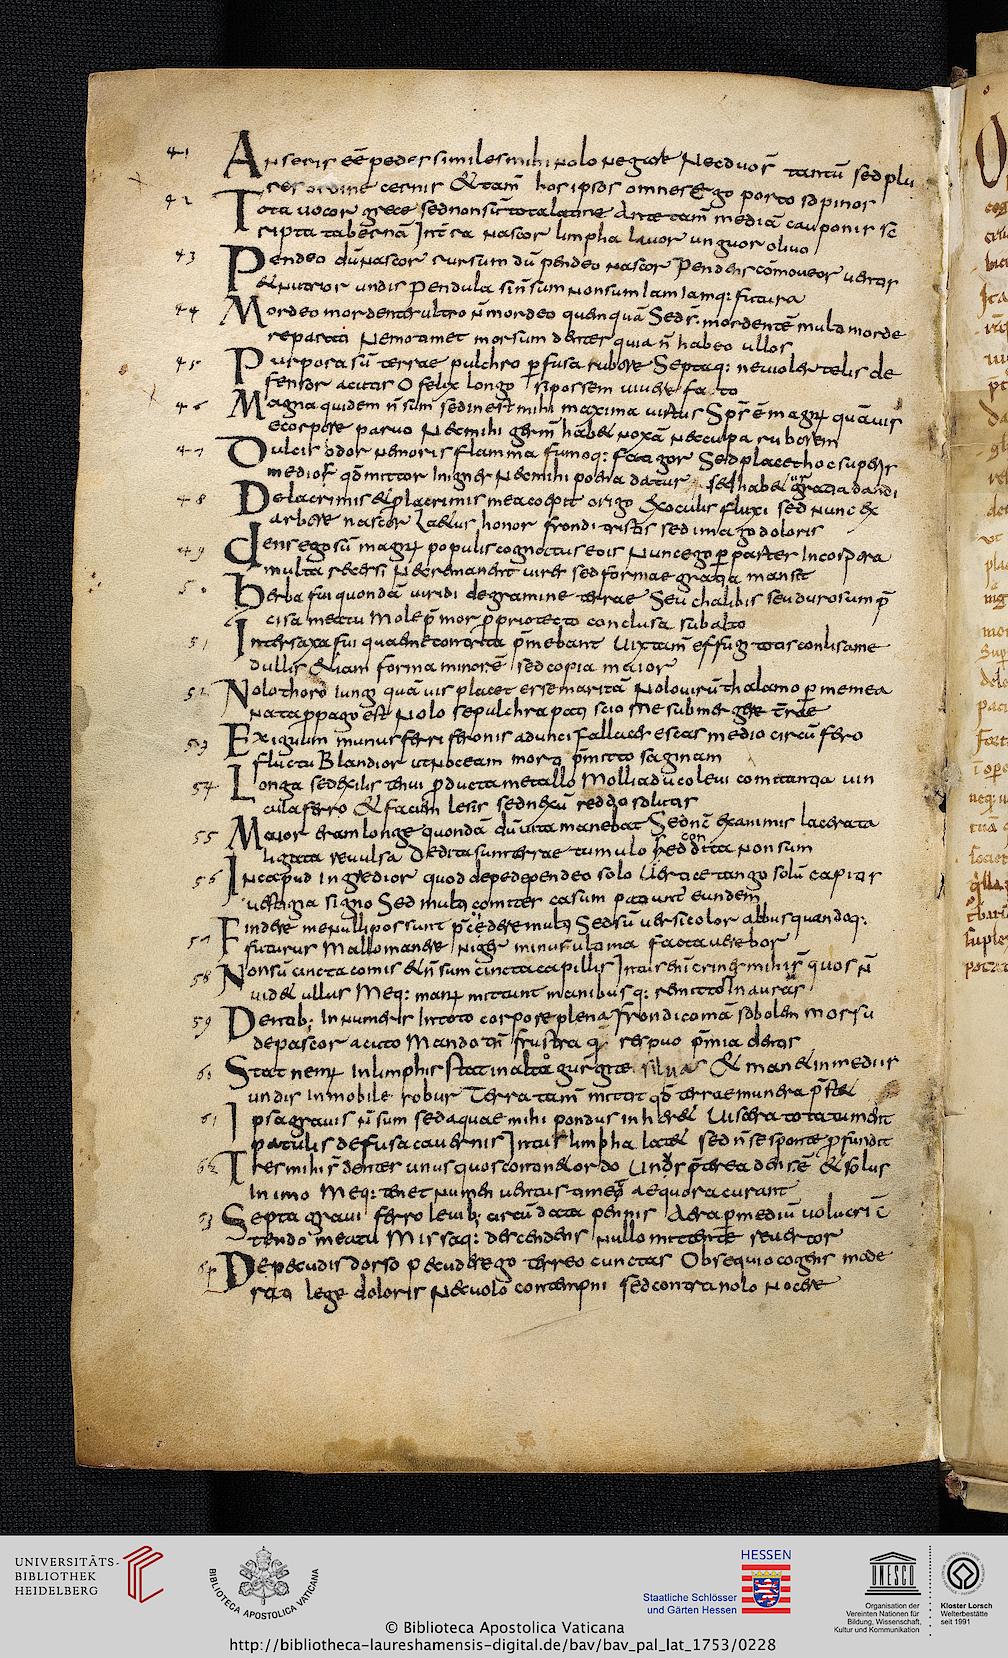 41 Anseris eē pedes similes mihi nolo negare Nec duoꝝ tantū sed plu
res ordine cernis & tam̄ hos ipsos omnes Ego porto supinos
42 Tota uocor grece sed non sū tota latine Ante tam̄ mediā cauponis sc̄
ripta tabernā Int̄ra nascor limpha lauor unguor oliuo
43 Pendeo dū nascor rursum dū pendeo nascor Pendens cōmoueor uentis
& nutrior undis Pendula si n̄ sum non sum iam iamq: futura
44 Mordeo mordentes ultro n̄ mordeo quenquā Sed s̄: mordentē multa morde
re parata Nemo tamet morsum dentes quia n̄ habeo ullos
45 Purpora sū terrae pulchro ꝑfusa rubore Septaq: ne uioler telis de
fensor acutis O felix longo si possem uiuere fato
46 Magna quidem n̄ sum sed inest mihi maxima uirtus Spr̄ ē magn; quāuis
e corpore paruo Nec mihi germ̄ habet noxā nec culpa ruborem
47 Dulcis odor nemoris flamma fumoq: fatigor Sed placet hoc super
medios qd̄ mittor in ignes Nec mihi poena datur sed habet gratia dandi
48 De lacrimis & ꝑ lacrimis mea coepit origo Ex oculis fluxi sed nunc ex
arbore nascor Laetus honor frondi tristis sed imago doloris
49 dens ego sū magn; populis cognitus eois Nunc ego ꝑ partes In corpora
multa recessi Nec remanent uires sed formae gratia mansit
50 herba fui quondā uiridi de gramine terrae Seu chalibis seu duro sum p̄
cisa metallo Mole p̄mor ꝑpria tecto conclusa sub alto
51 Inter saxa fui quae me contrita p̄mebant Uix tam̄ effugi totis conlisa me
dullis & iam forma minorē sed copia maior
52 Nolo thoro iungi quāuis placet esse maritā Nolo uirū thalamo ꝑ me mea
nata ꝓpago est Nolo sepulchra pati scio me submergere t̄rae
53 Exiguum munus ferri feronis adunci Fallaces escas medio circū fero
fluctu Blandior ut noceam morti p̄mitto saginam
54 Longa sed exilis tenui ꝓducta metallo Mollia duco leui comitantia uin
cula ferro & faciem lesis sed nexū reddo solutis
55 Maior eram longe quondā dū uita manebat Sed nc̄ exanimis lacerata
ligata reuulsa Dedita sum terrae tumulo sed condita non sum
56 In caput ingredior quod de pede pendeo solo Uertice tango solū capitis
uestigia signo Sed multi comites casum patiunt eundem
57 Findere me nulli possunt p̄cēdere multi Sed sū uersicolor albus quandoq:
futurus Mallo manere niger minus ultima facta uerebor
58 Non sū cincta comis & n̄ sum cincta capillis Intus eni crines mihi s̄ quos n̄
uidet ullus Meq: man; mittunt manibusq: remittor In auras
59 Dentib; In numeris In toto corpore plena Frondicomā sobolem morsu
depascor acuto Mando tn̄ frustra q̄ respuo p̄mia dentis
60 Stat nem; In limphis stat in alto gurgite silua & manet in mediis
undis inmobile robur Terra tam̄ mittit qd̄ terrae munera p̄stet
61 Ipsa grauis n̄ sum sed aquae mihi pondus inheret Uiscera tota tument
patulis defusa cauernis Intus limpha latet sed n̄ se sponte ꝓfundit
62 Tres mihi s̄ dentes unus quos continet ordo Unus p̄terea dens ē & solus
In imo Meq: tenet numen uentus timet aequora curant
63 Septa graui ferro leuib; circū data pennis Aera ꝑ mediū uolucri c̄
tendo meatu Missaq: descendens nullo mittente reuertor
De pecudis dorso pecudes ego terreo cunctas Obsequio cogens mode
rati lege doloris Nec uolo contempni sed contra nolo nocere
UNIVERSITÄTS-
BIBLIOTHEK
HEIDELBERG
BIBLIOTECA APOSTOLICA VATICANA
HESSEN
Staatliche Schlösser
und Gärten Hessen
UNESCO
Organisation der
Vereinten Nationen für
Bildung, Wissenschaft,
Kultur und Kommunikation
Kloster Lorsch
Welterbestätte
seit 1991
© Biblioteca Apostolica Vaticana
http://bibliotheca-laureshamensis-digital.de/bav/bav_pal_lat_1753/0228